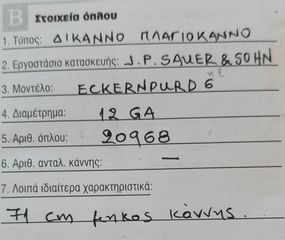 B Στοιχεία όπλου
1. Τύπος: ΔΙΚΑΝΝΟ ΠΛΑΓΙΟΚΑΝΝΟ
2. Εργοστάσιο κατασκευής: J.P. SAUER & SOHN
3. Μοντέλο: ECKERNPURD 6
4. Διαμέτρημα: 12 GA
5. Αριθ. όπλου: 20968
6. Αριθ. ανταλ. κάννης: —
7. Λοιπά ιδιαίτερα χαρακτηριστικά:
71 cm μηκος κάννης.